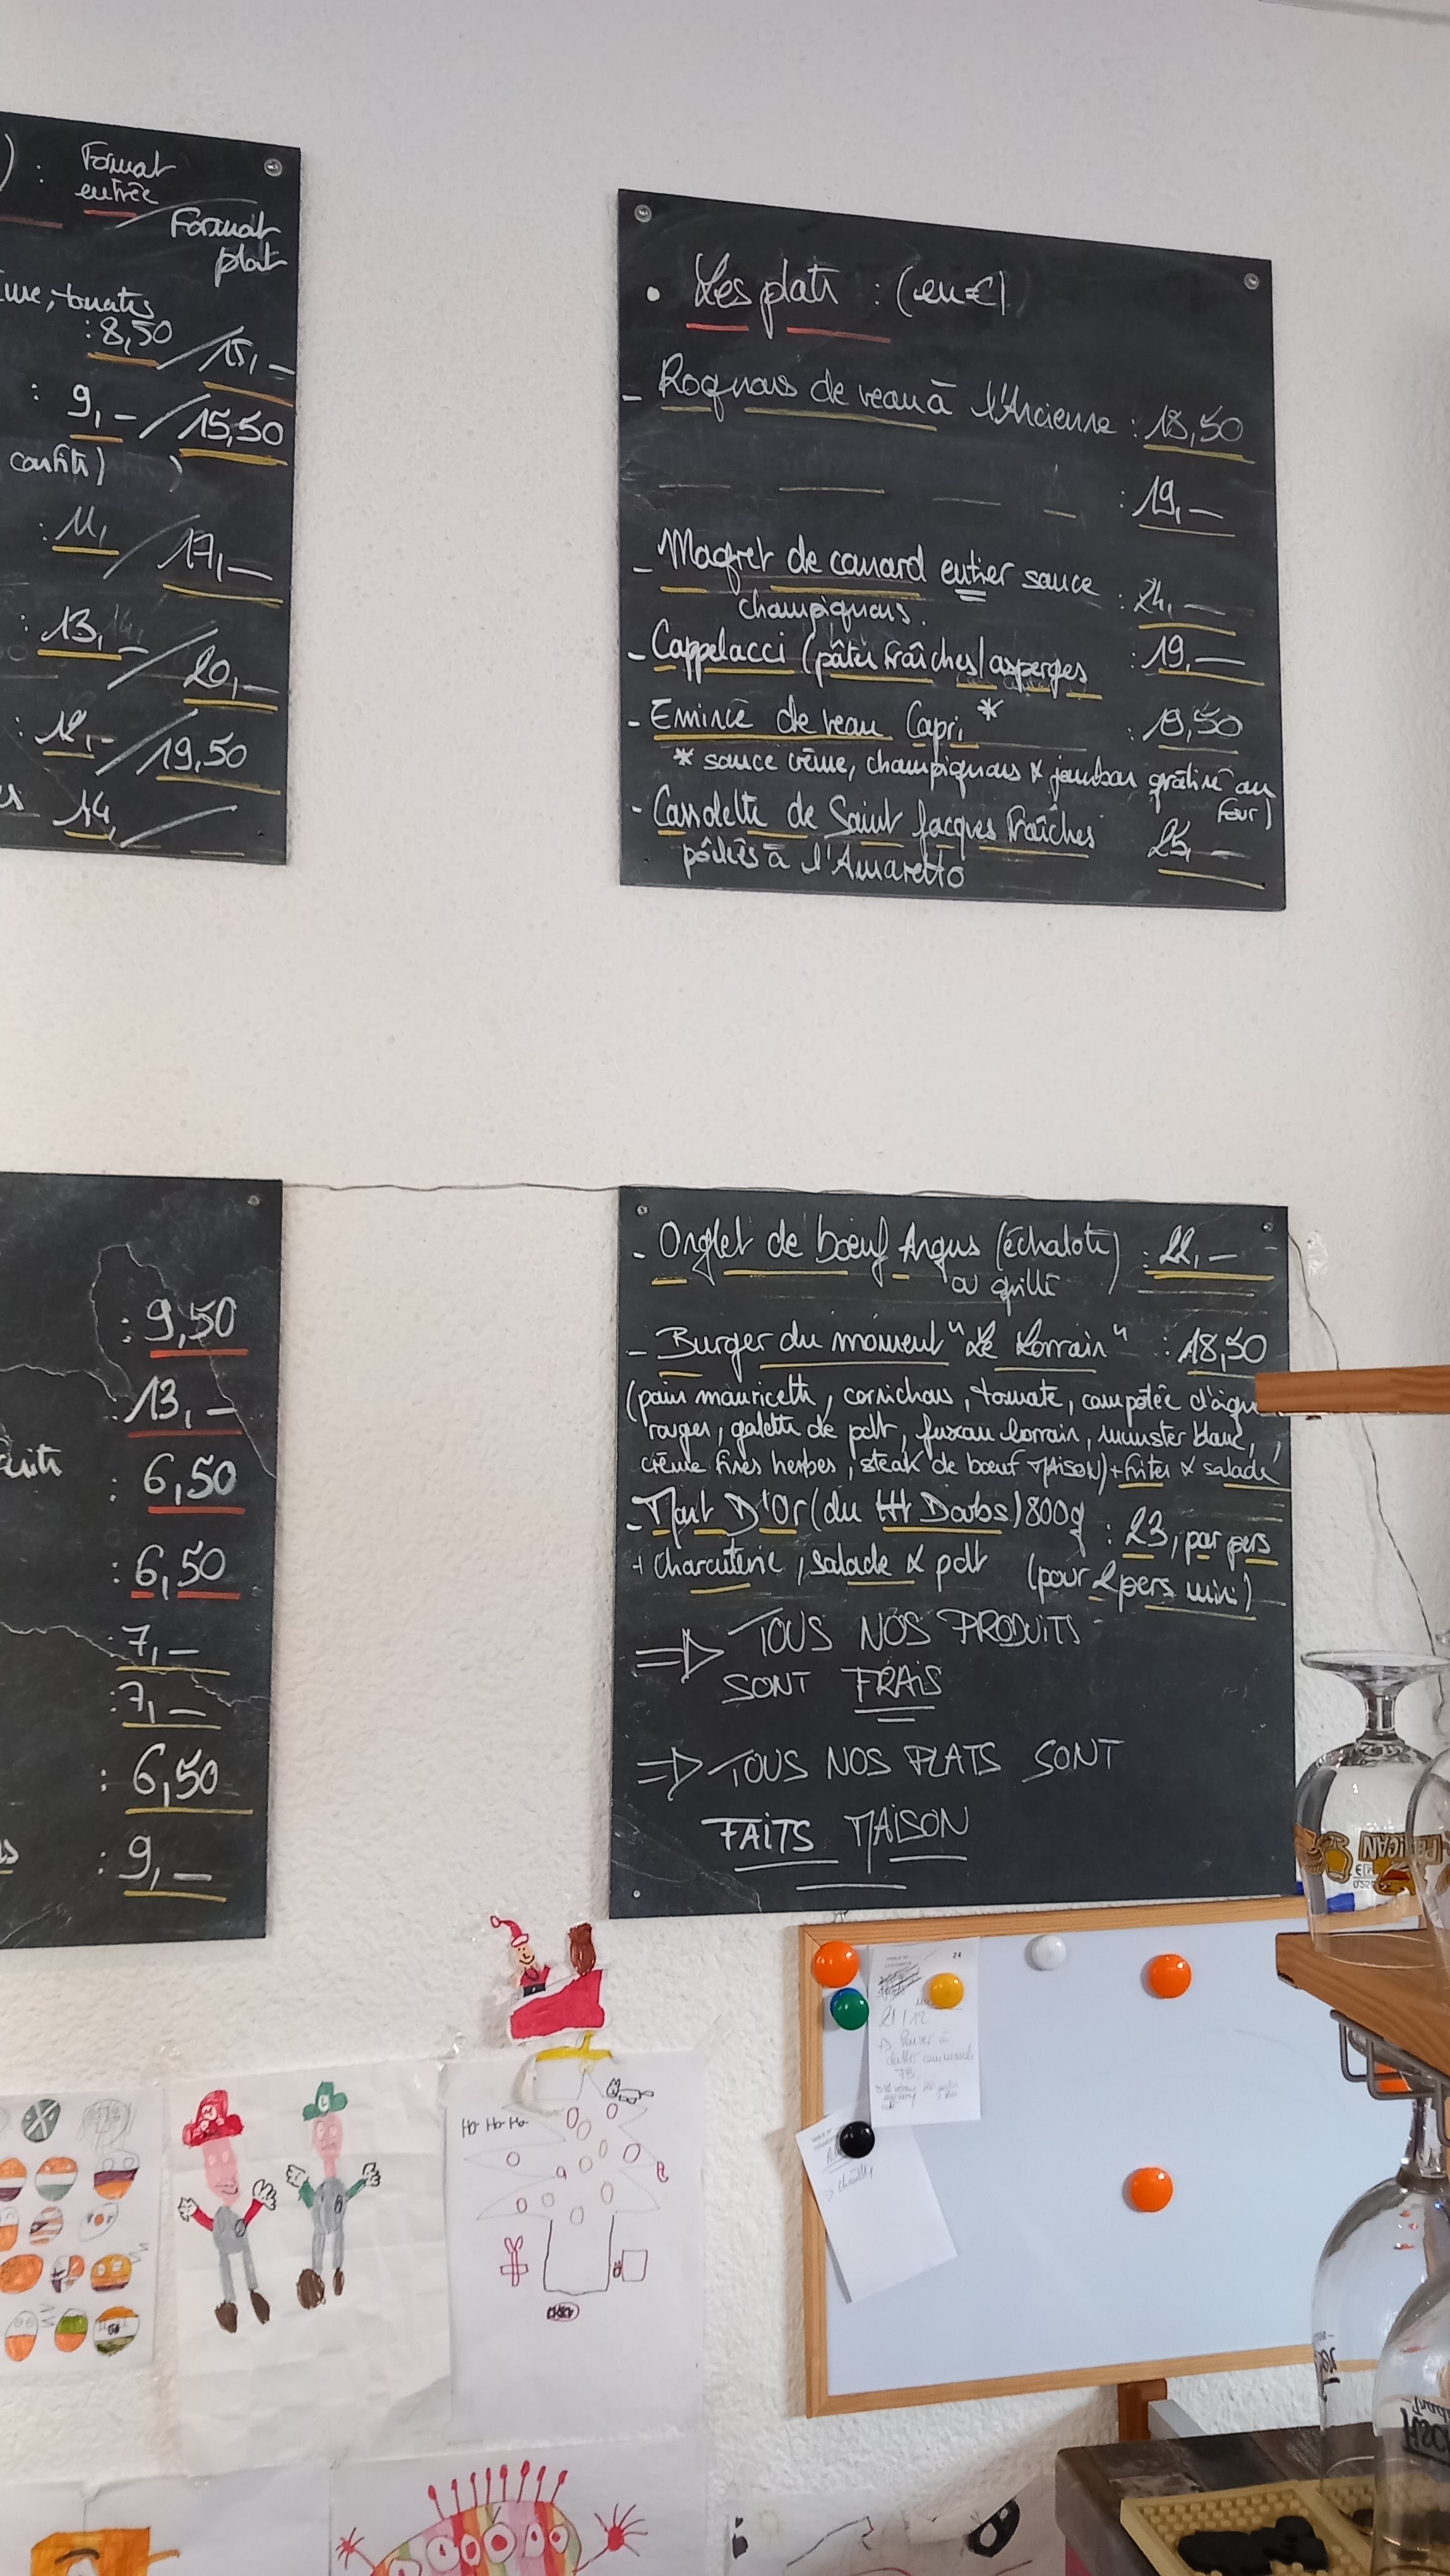 ) : Format
entrée
Format
plat
tomates
: 8,50 / 15,—
: 9,— / 15,50
confits)
: 11, / 17,—
: 13,— / 20,—
: 12,— / 19,50
14, /
• Les plats : (en €)
- Rognons de veau à l'Ancienne : 18,50
: 19,—
- Magret de canard entier sauce : 24,—
champignons.
- Cappelacci (pâtes fraîches) asperges : 19,—
- Emincé de veau Capri * : 19,50
* sauce crème, champignons & jambon gratiné au
four)
- Cassolette de Saint Jacques fraîches 25,—
poêlées à l'Amaretto
: 9,50
: 13,—
: 6,50
: 6,50
: 7,—
: 7,—
: 6,50
: 9,—
- Onglet de bœuf Angus (échalote) : 22,—
ou grillé
- Burger du moment "Le Lorrain" : 18,50
(pain mauricette, cornichons, tomate, compotée d'oign
rouges, galette de pdt, fuseau lorrain, munster blanc,
crème fines herbes, steak de bœuf MAISON) + frites & salade
- Mont D'Or (du Ht Doubs) 800g : 23, par pers
+ charcuterie, salade & pdt (pour 2 pers mini)
⇒ TOUS NOS PRODUITS
SONT FRAIS
⇒ TOUS NOS PLATS SONT
FAITS MAISON
PELICAN
24
21/12
Ho Ho Ho
M
L